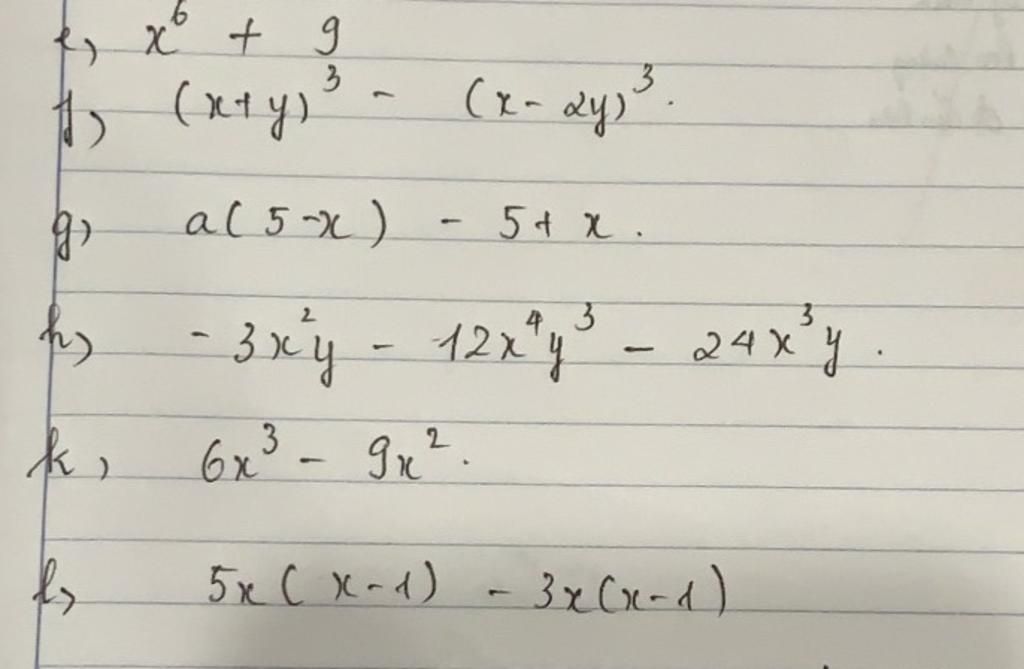 e) x⁶ + 9
f) (x+y)³ - (x-2y)³.
g) a(5-x) - 5+x.
h) -3x²y - 12x⁴y³ - 24x³y.
k) 6x³ - 9x².
l) 5x(x-1) - 3x(x-1)